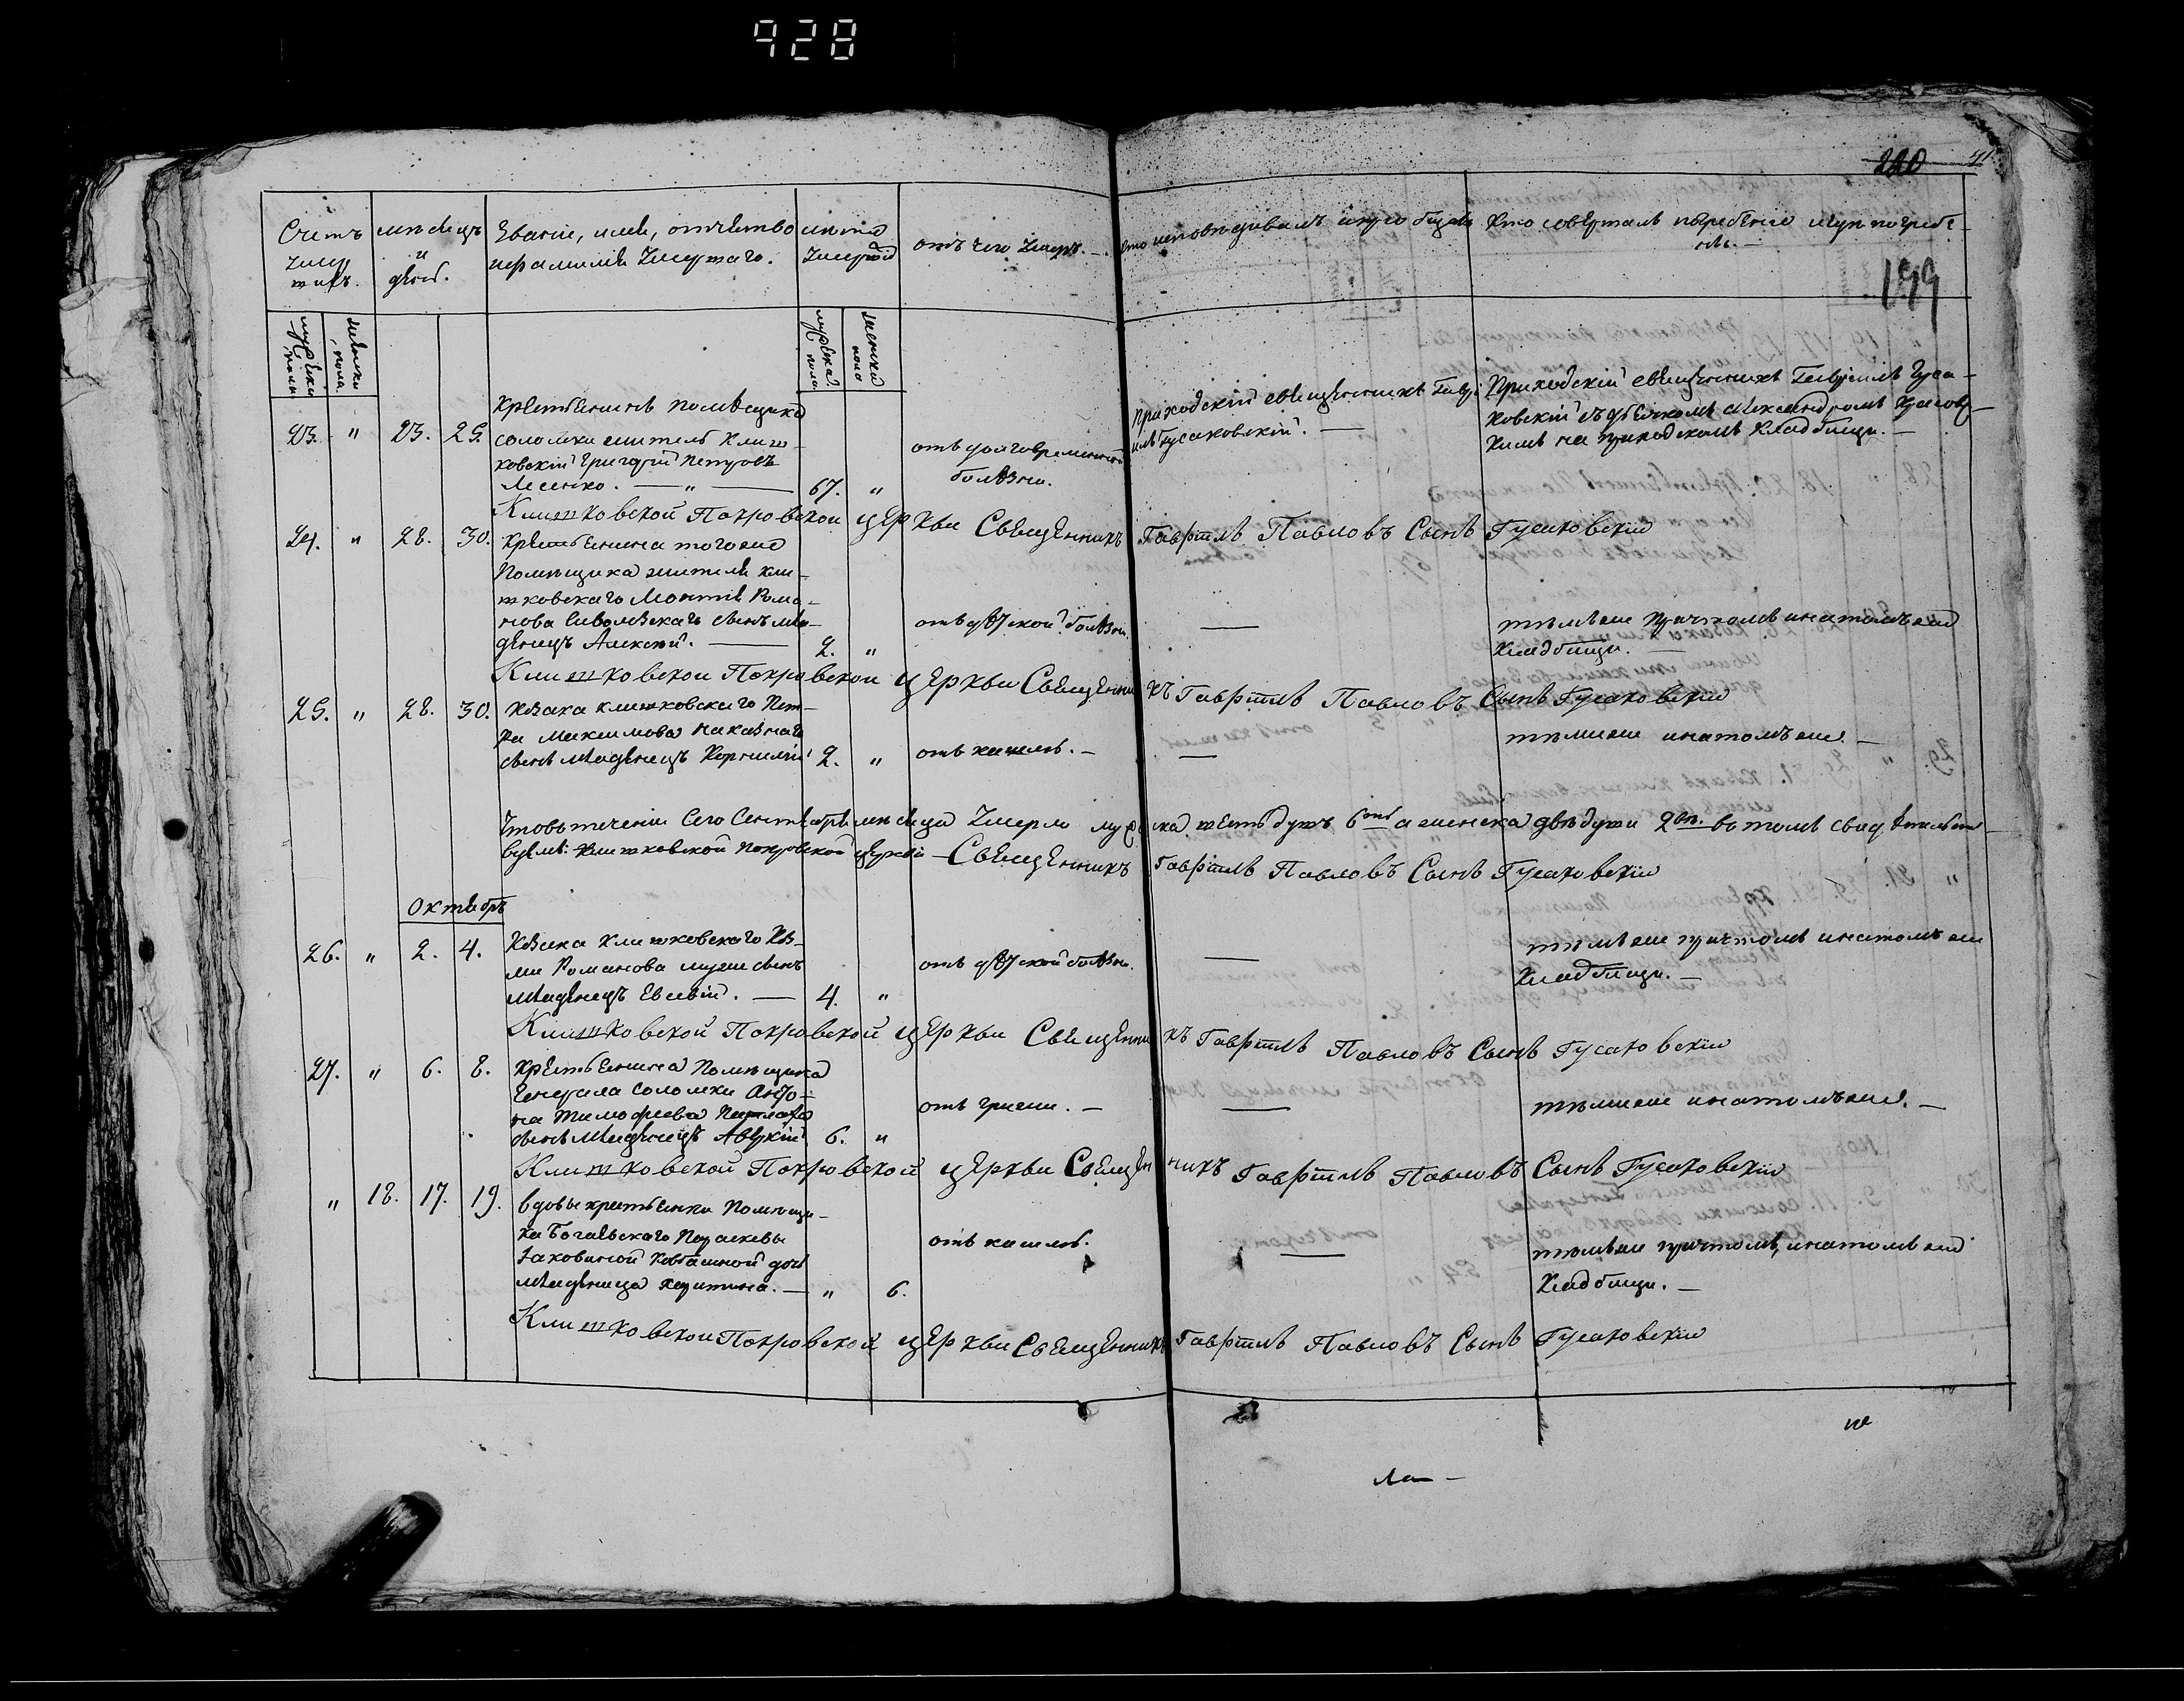 928
220 41.
199
Счетъ умер шихъ.
мѣсяцъ и день.
Званіе, имя, отчество и фамилія умершаго.
лѣта умершаго
отъ чего умеръ.
кто исповѣдывалъ и пріобщалъ
Кто совершалъ погребеніе и гдѣ погребе-
нъ.
мужеска пола
женска пола.
мужеска пола.
женска пола
23. " 23. 25.
Крестьянинъ помѣщика
Соломки житель Клиш-
ковскій Григорій Петровъ
Лесенко. — " — 67. "
отъ долговременной
болѣзни.
Приходскій священникъ Гаврі-
илъ Гусаковскій. —
Приходскій священникъ Гавріилъ Гуса-
ковскій съ дьячкомъ Александромъ
на приходскомъ кладбищи. —
Клишковской Покровской церкви Священникъ Гавріилъ Павловъ Сынъ Гусаковскій
24. " 28. 30.
Крестьянина того же
Помѣщика жителя Кли-
шковскаго Рома-
нова сынъ мла-
денецъ Алексѣй. — 2. "
отъ дѣтской болѣзни.
—
тѣмъ же причтомъ и на томъ же
кладбищи. —
Клишковской Покровской церкви Священникъ Гавріилъ Павловъ Сынъ Гусаковскій
25. " 28. 30.
Козака клишковскаго Пет-
ра Максимова
сынъ младенецъ Корнилій 2. "
отъ кашля. —
—
тѣмъ же и на томъ же. —
Что въ теченіи Сего Сентября мѣсяца умерло мужеска шесть душъ 6 а женска двѣ души 2 въ томъ свидѣтельст-
вуемъ: Клишковской Покровской церкви — Священникъ Гавріилъ Павловъ Сынъ Гусаковскій
Октябрь
26. " 2. 4.
Козака клишковскаго
Романова сынъ
младенецъ Евсевій. — 4. "
отъ дѣтской болѣзни.
—
тѣмъ же причтомъ и на томъ же
кладбищи. —
Клишковской Покровской церкви Священникъ Гавріилъ Павловъ Сынъ Гусаковскій
27. " 6. 8.
Крестьянина Помѣщика
Генерала Соломки Анто-
на Тимофеева
сынъ младенецъ 6. "
отъ грижи. —
—
тѣмъ же и на томъ же. —
Клишковской Покровской церкви Священникъ Гавріилъ Павловъ Сынъ Гусаковскій
" 18. 17. 19.
вдовы крестьянки Помѣщи-
ка Параскевы
дочь
младеница Харитина. — " 6.
отъ кашля.
—
тѣмъ же причтомъ, и на томъ же
кладбищи. —
Клишковской Покровской церкви Священникъ Гавріилъ Павловъ Сынъ Гусаковскій